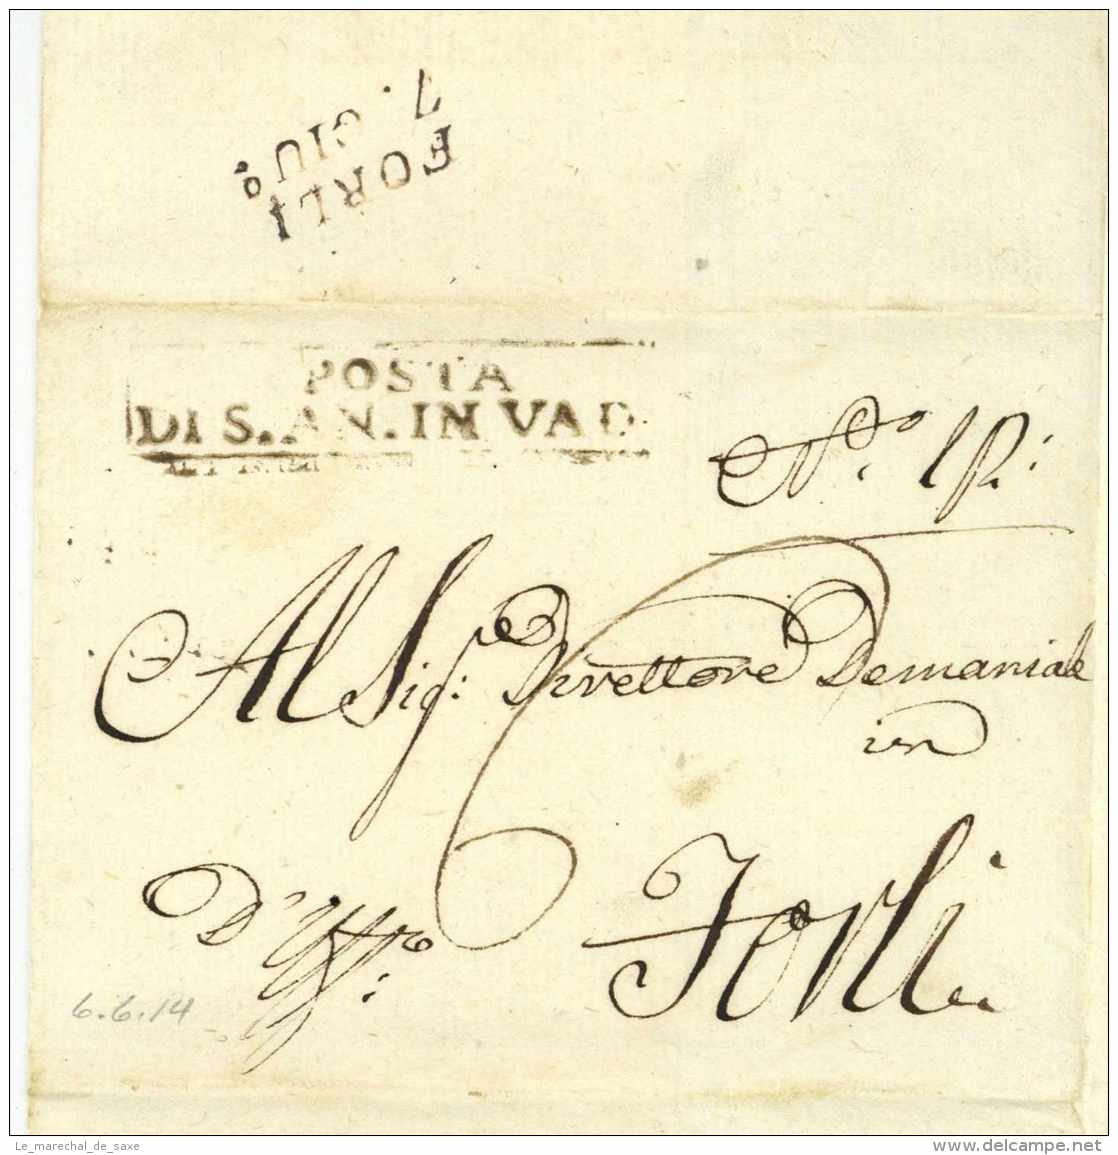 FORLI
7. GIUº.
POSTA
DI S. AN. IN VAD.
Nº. 1R:
Al Sigre: Direttore Demaniale
in
Forli
D'Uffº:
6.6.14
Le_marechal_de_saxe
www.delcampe.net